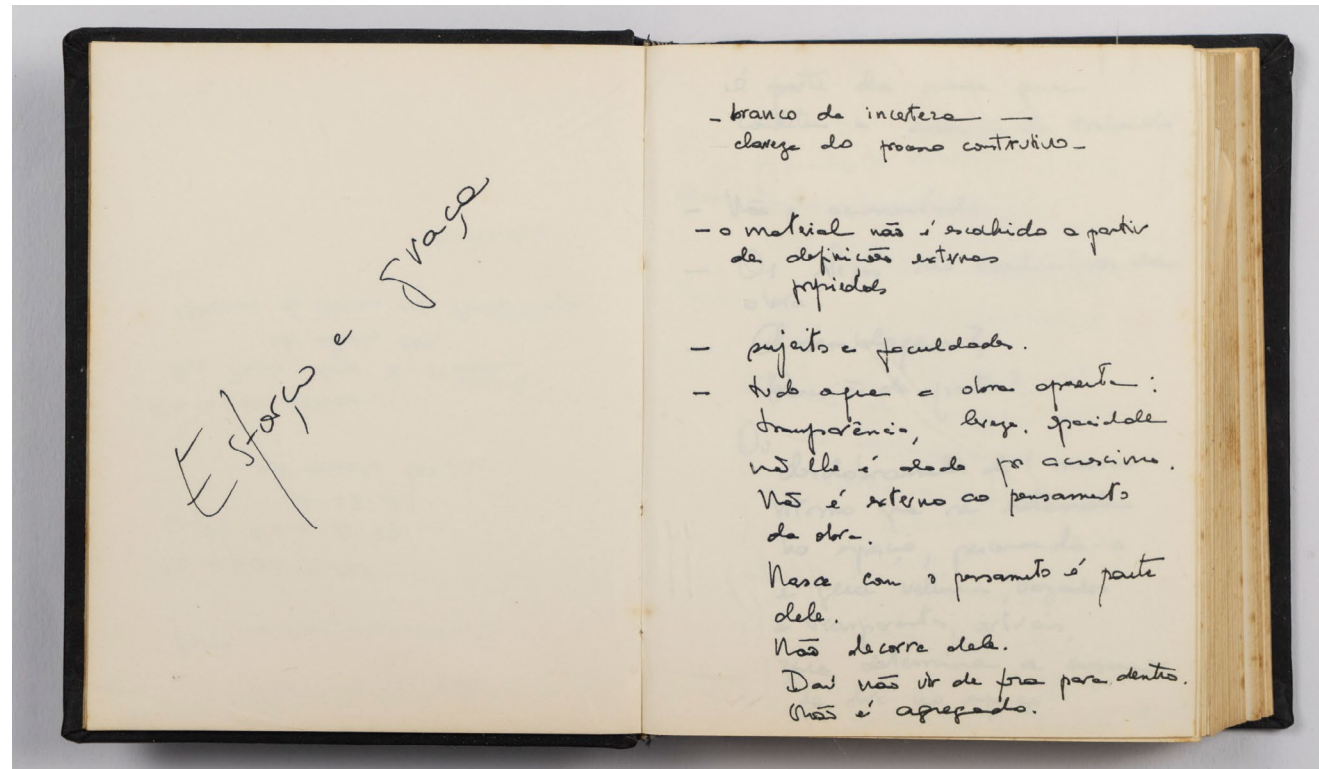 Esforço e graça
- branco da incerteza -
clareza do processo construtivo -
- o material não é escolhido a partir
de definições externas
propriedades
- sujeito e faculdades.
- tudo aquilo a obra apresenta :
transparência, leveza, opacidade
não lhe é dado por acréscimo.
Não é externo ao pensamento
da obra.
Nasce com o pensamento é parte
dele.
Não decorre dele.
Daí não vir de fora para dentro.
Não é agregado.